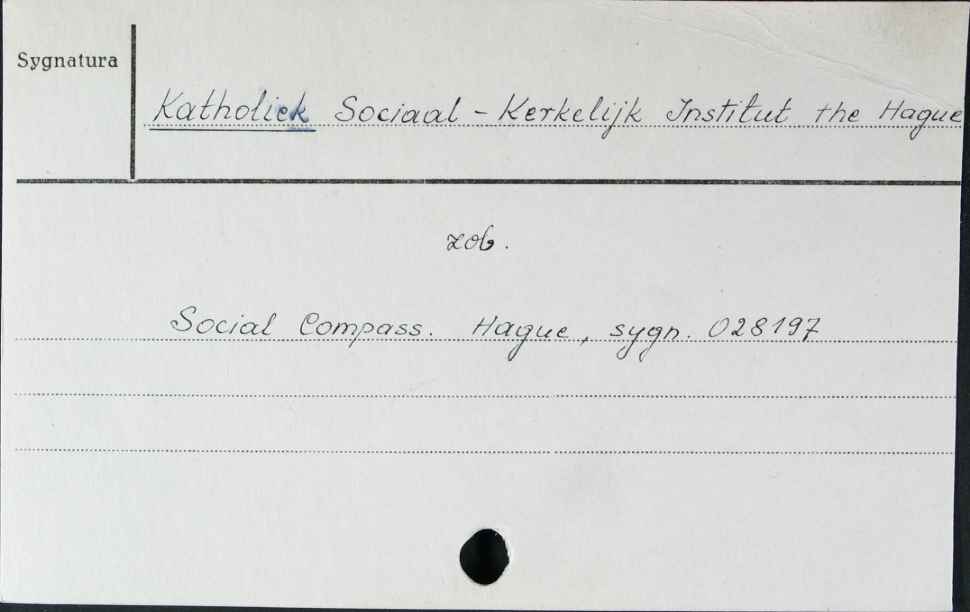 Sygnatura
Katholiek Sociaal - Kerkelijk Institut the Hague
zob.
Social Compass. Hague, sygn. 028197